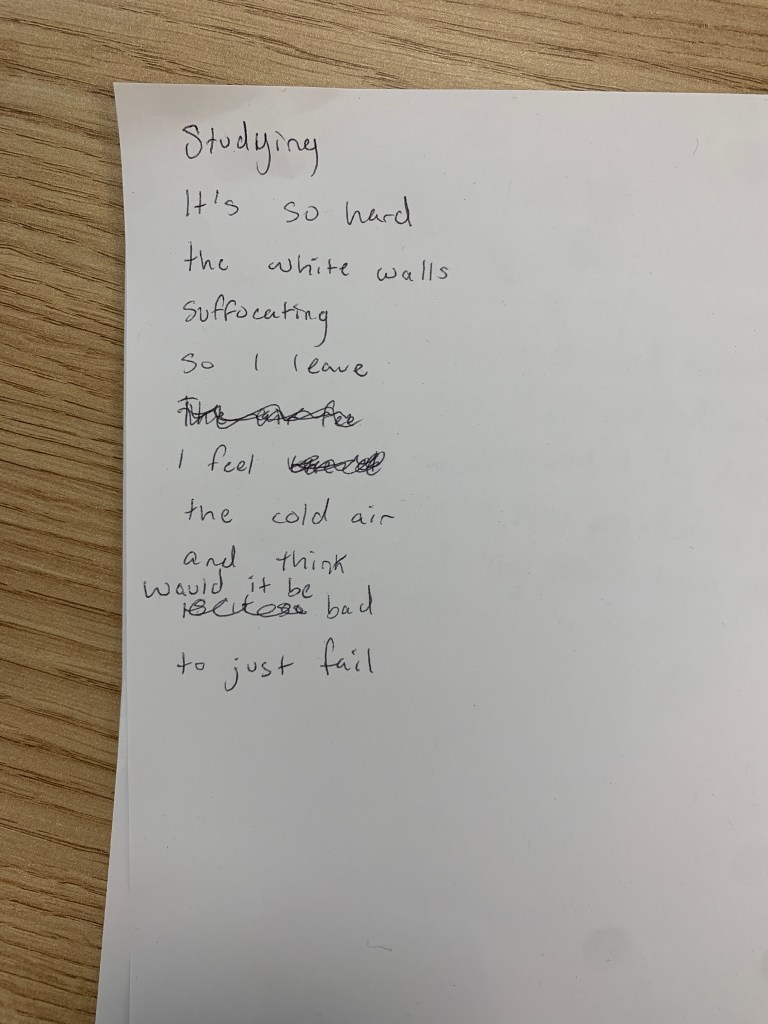 Studying
It's so hard
the white walls
suffocating
so I leave
I feel
the cold air
and think
would it be
bad
to just fail